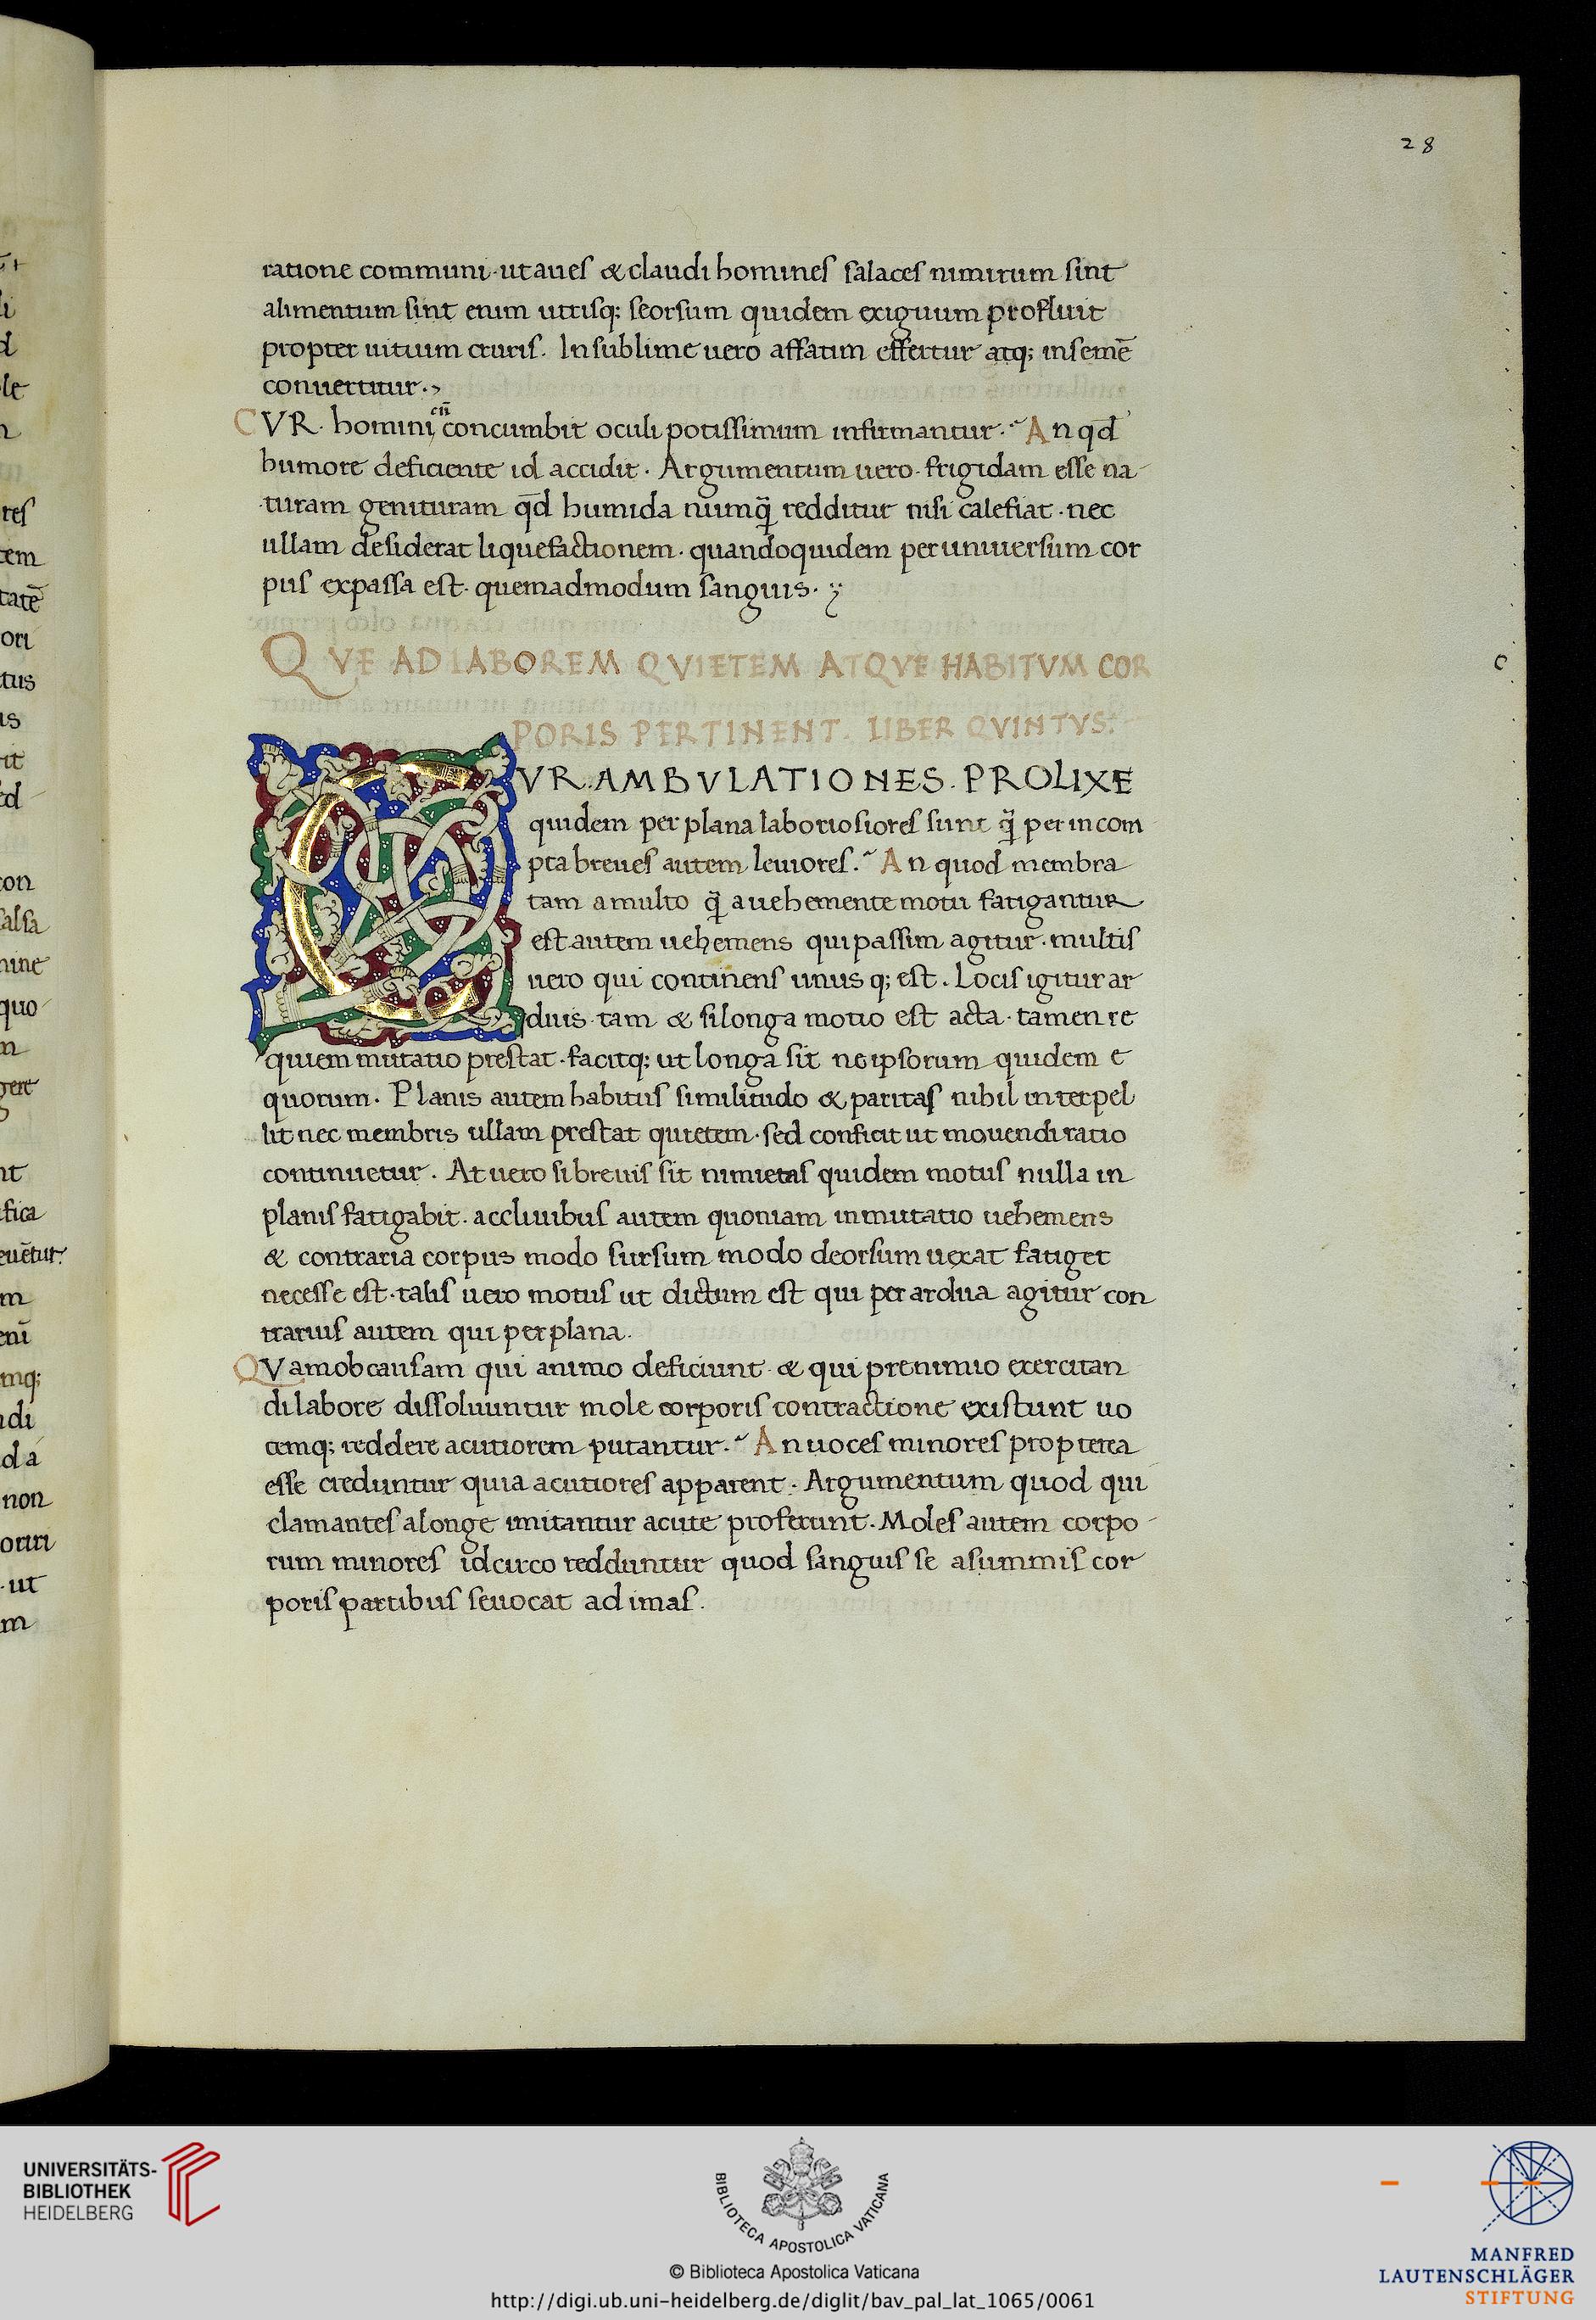 28
ratione communi · ut aues & claudi homines salaces nimirum sint
alimentum sint enim utrisq; seorsum quidem exiguum profluit
propter uitium cruris. In sublime uero affatim effertur atq; in semē
conuertitur.
CVR. homini cū concumbit oculi potissimum infirmantur. An qd̄
humore deficiente id accidit. Argumentum uero · frigidam esse na
turam genituram qd̄ humida numq̄ redditur nisi calefiat · nec
ullam desiderat liquefactionem · quandoquidem per uniuersum cor
pus expassa est · quemadmodum sanguis.
QVE AD LABOREM QVIETEM ATQVE HABITVM COR
PORIS PERTINENT. LIBER QVINTVS.
CVR. AMBVLATIONES. PROLIXE
quidem per plana laboriosiores sunt q̄ per incom
pta breues autem leuiores. An quod membra
tam a multo q̄ a uehemente motu fatigantur
est autem uehemens qui passim agitur · multis
uero qui continens unus q; est. Locis igitur ar
duis · tam & si longa motio est acta · tamen re
quiem mutatio prestat · facitq; ut longa sit ne ipsorum quidem e
quorum. Planis autem habitus similitudo & paritas nihil interpel
lit nec membris ullam prestat quietem · sed conficit ut mouendi ratio
continuetur. At uero si breuis sit nimietas quidem motus nulla in
planis fatigabit · accliuibus autem quoniam inmutatio uehemens
& contraria corpus modo sursum modo deorsum uexat fatiget
necesse est · talis uero motus ut dictum est qui per ardua agitur con
trarius autem qui per plana.
QVamobcausam qui animo deficiunt & qui pre nimio exercitan
di labore dissoluuntur mole corporis contractione existunt uo
cemq; reddere acutiorem putantur. An uoces minores propterea
esse creduntur quia acutiores apparent. Argumentum quod qui
clamantes a longe imitantur acute proferunt. Moles autem corpo
rum minores idcirco redduntur quod sanguis se a summis cor
poris partibus seuocat ad imas.
UNIVERSITÄTS-
BIBLIOTHEK
HEIDELBERG
BIBLIOTECA APOSTOLICA VATICANA
© Biblioteca Apostolica Vaticana
http://digi.ub.uni-heidelberg.de/diglit/bav_pal_lat_1065/0061
MANFRED
LAUTENSCHLÄGER
STIFTUNG